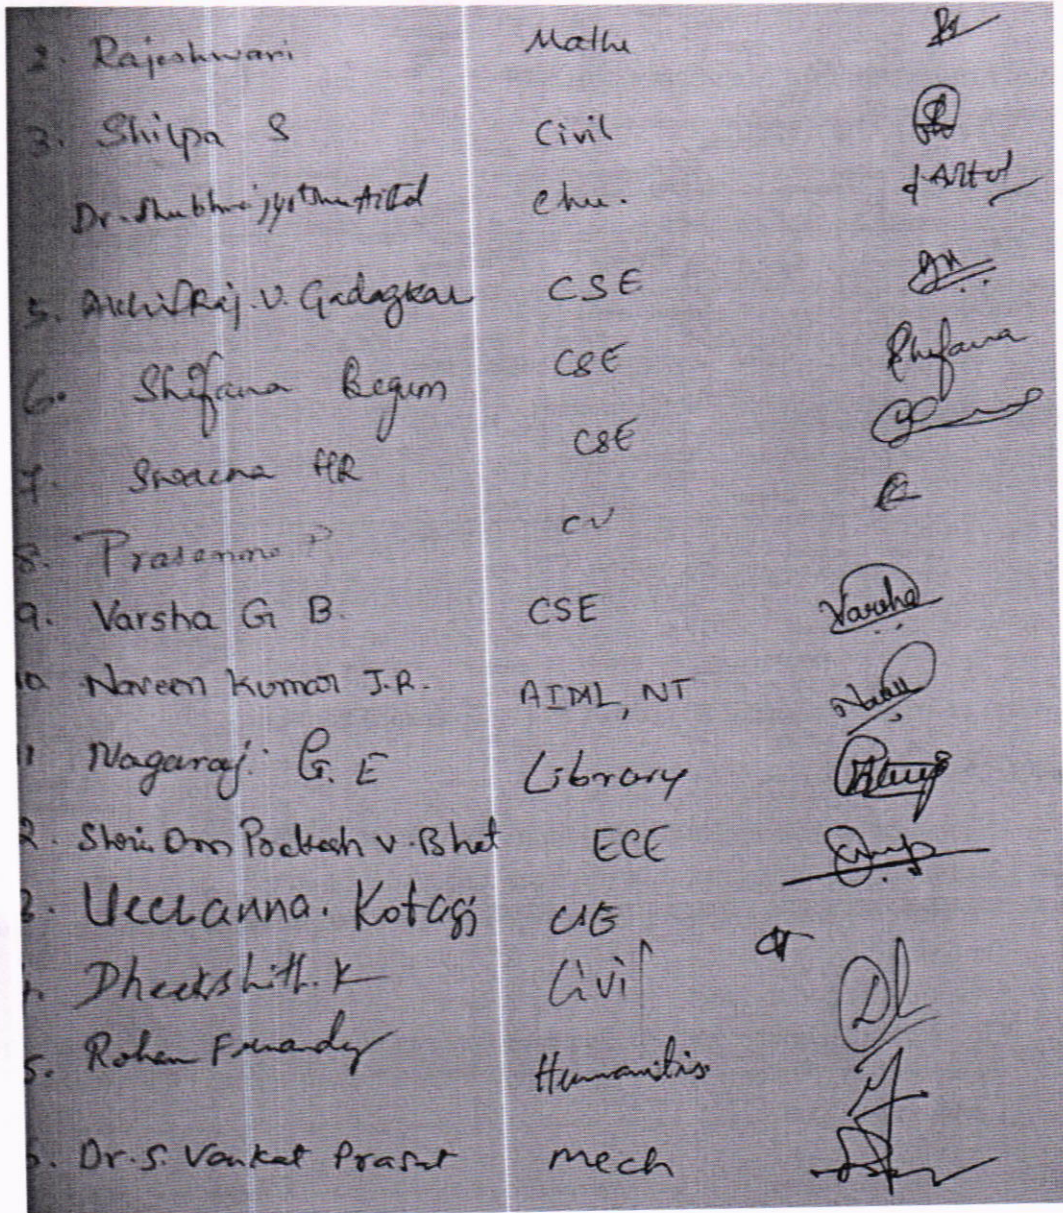 2. Rajeshwari Maths
3. Shilpa S Civil
Dr. Che.
5. Raj. V. Gadagkar CSE
6. Shifana Begum CSE Shifana
7. Swacna HR CSE
8. Prasanna P CV
9. Varsha G B. CSE Varsha
10 Naveen Kumar J.R. AIML, NT
11 Nagaraj. G. E Library
2. Shri Om Prakash V. Bhat ECE
3. Veeranna. Kotagi CSE
4. Dheekshith. K Civil
5. Rohan Fernandes Humanities
6. Dr. S. Venkat Prasat Mech